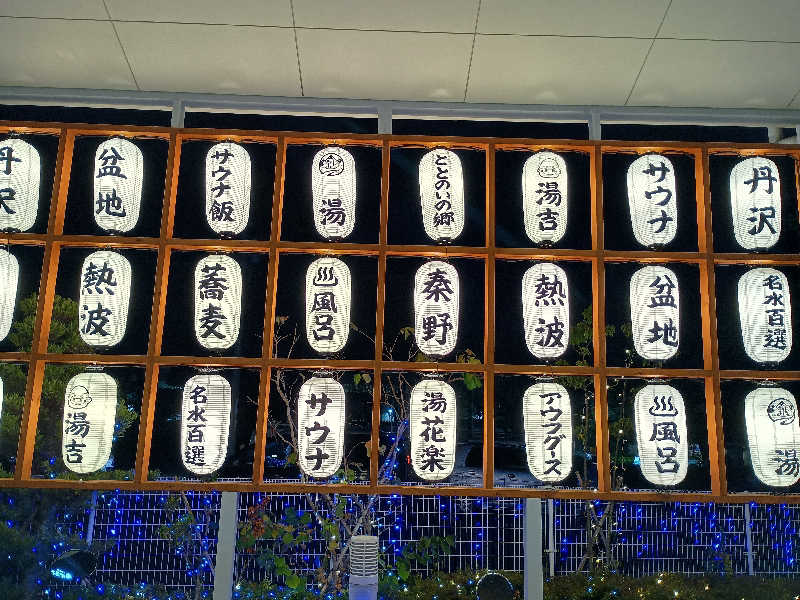 丹沢
盆地
サウナ飯
湯
ととのいの郷
湯吉
サウナ
丹沢
熱波
蕎麦
風呂
秦野
熱波
盆地
名水百選
湯吉
名水百選
サウナ
湯花楽
アウフグース
風呂
湯